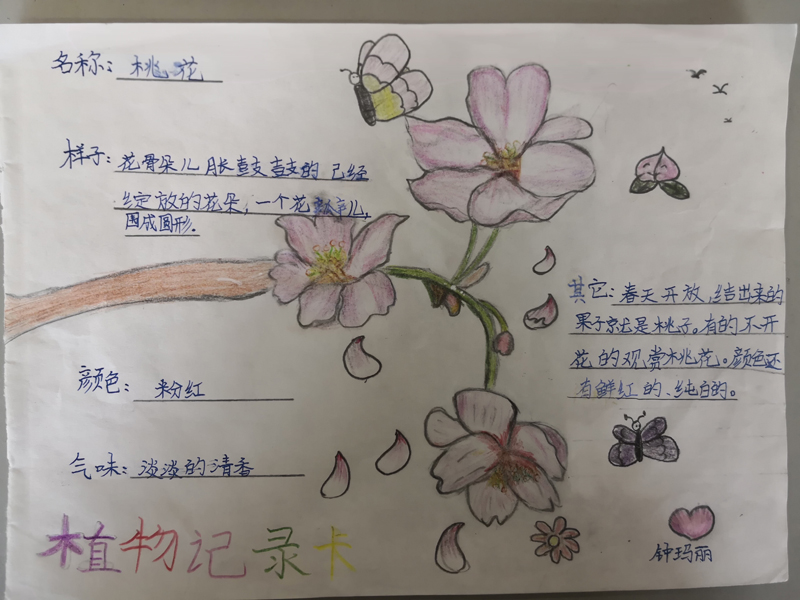 名称：桃花
样子：花骨朵儿胀鼓鼓的 已经
绽放的花朵，一个花瓣儿，
围成圆形.
其它：春天开放，结出来的
果子就是桃子。有的不开
花的观赏桃花。颜色还
有鲜红的、纯白的。
颜色：粉红
气味：淡淡的清香
植物记录卡
钟玛丽